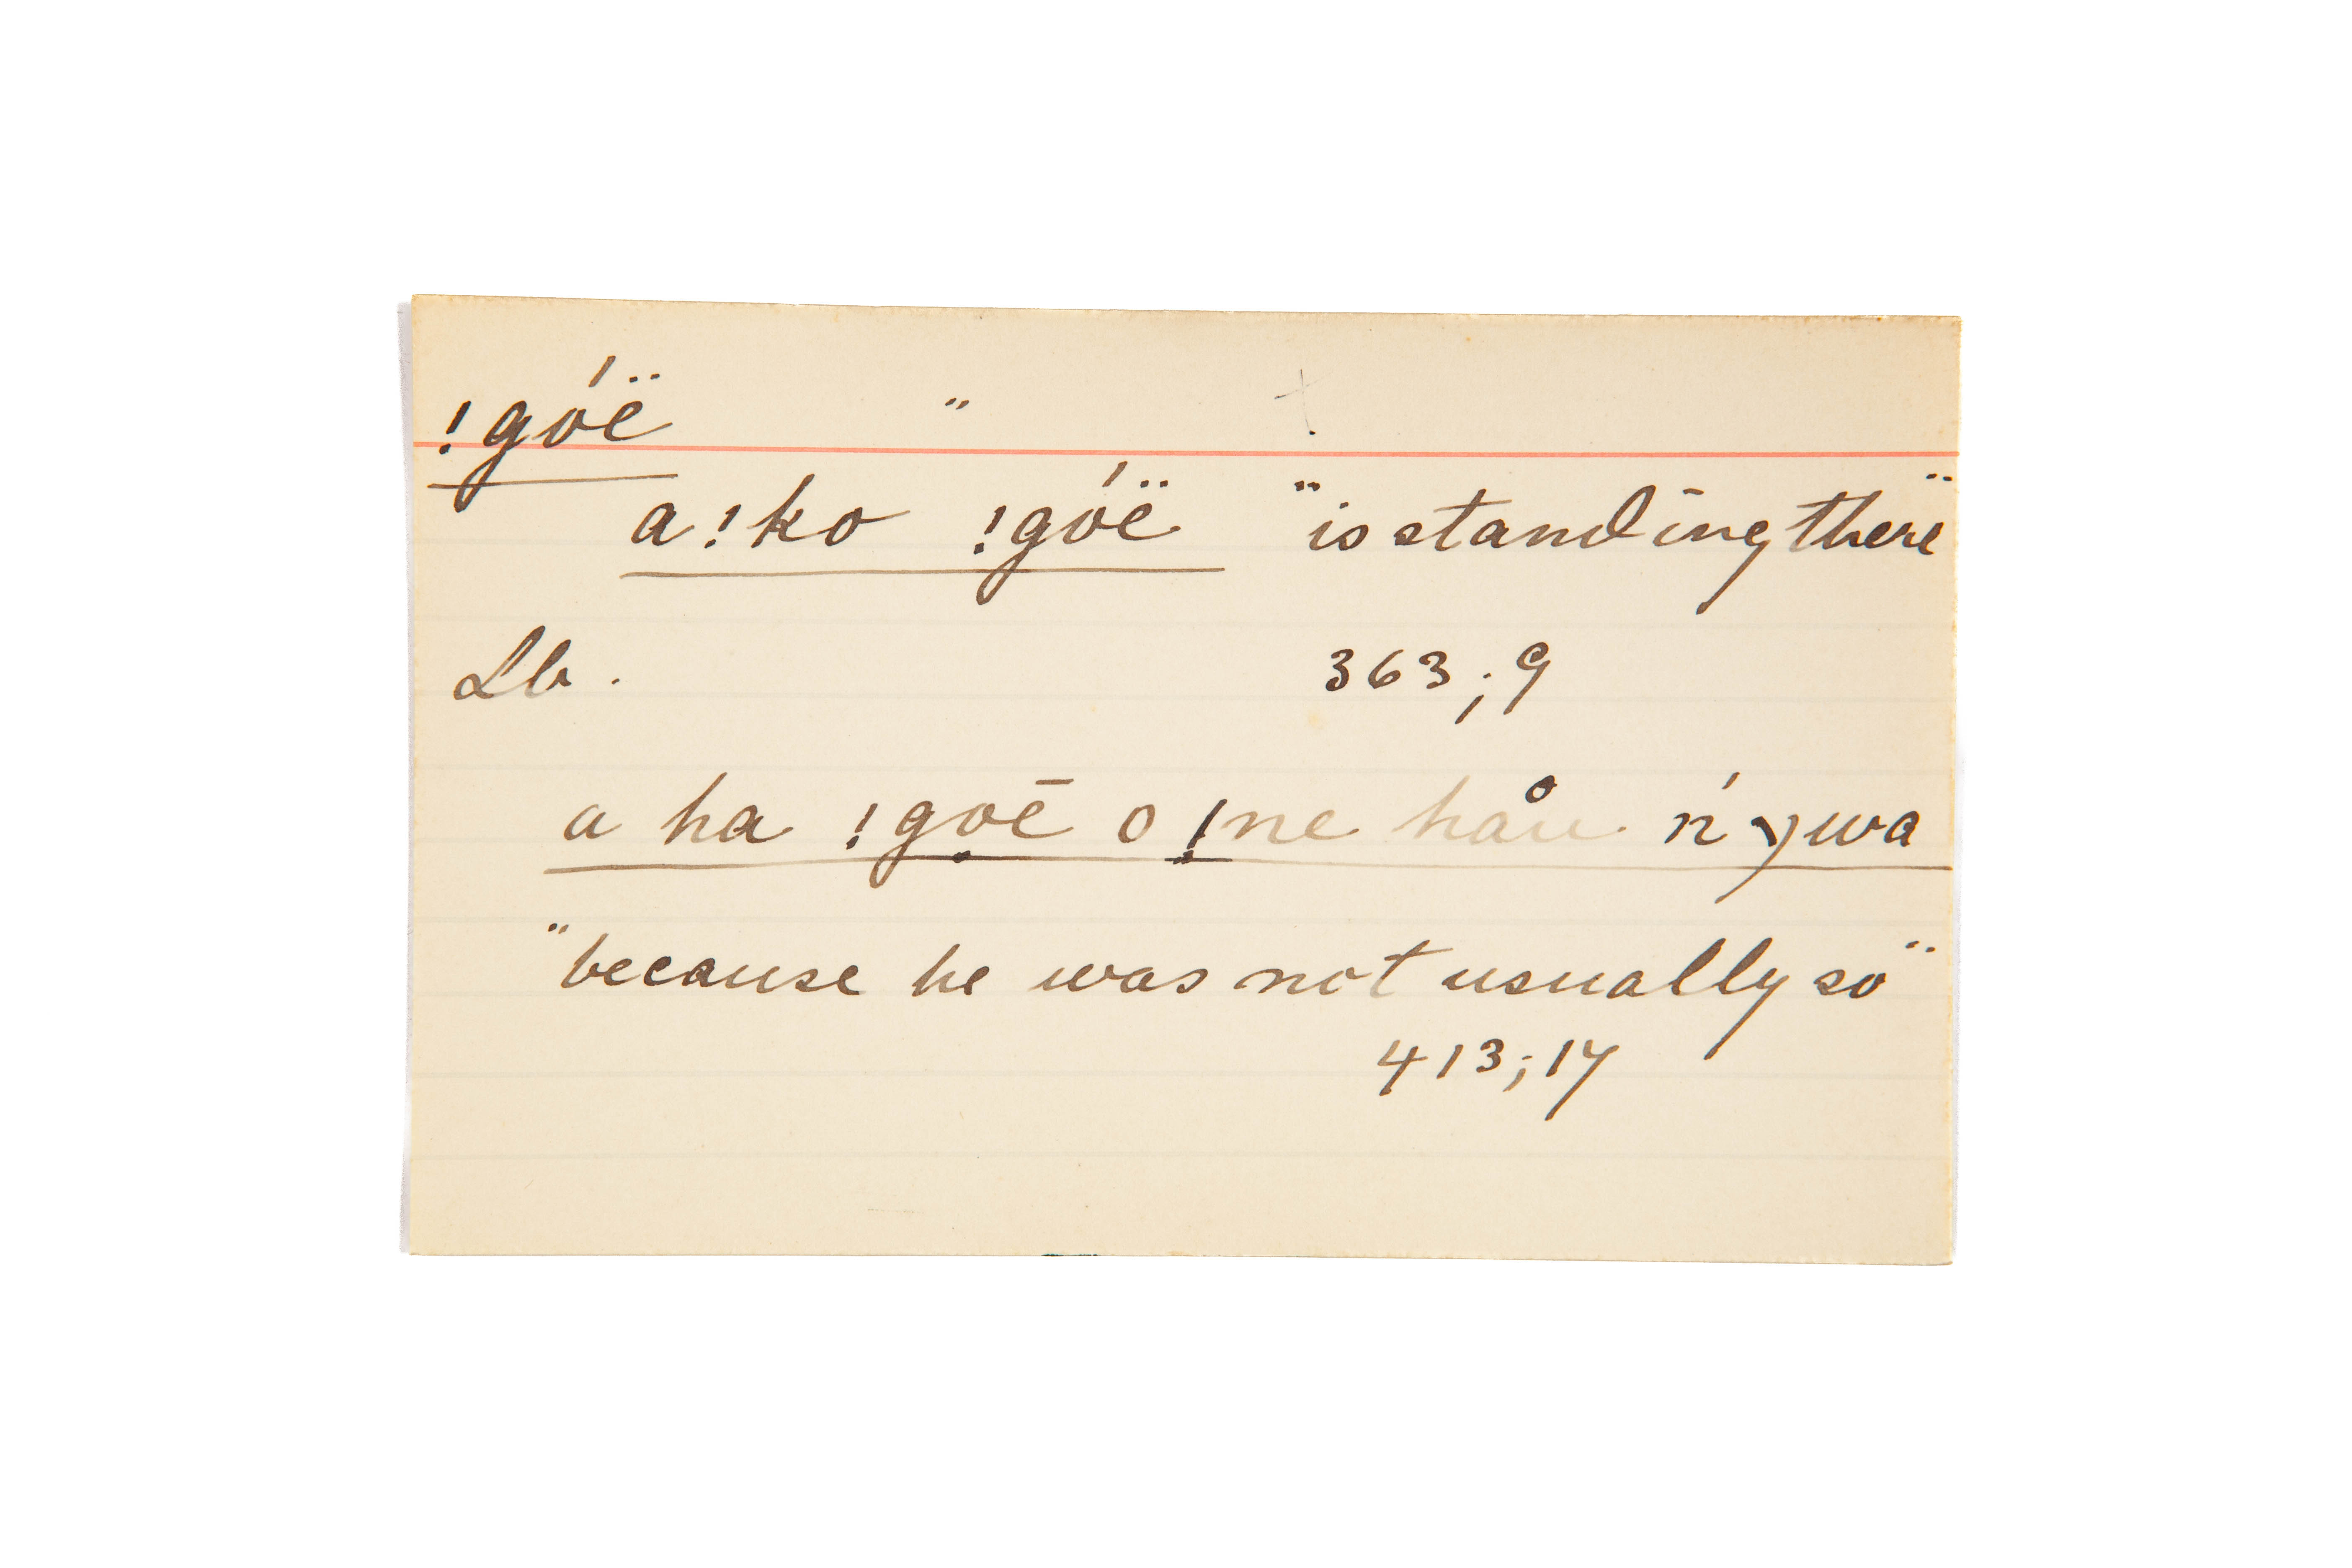 !góë "
a!ko !góë "is standing there"
Lb. 363;9
a ha !go̤ē o !ne håu ń ɣwa
"because he was not usually so"
413;17